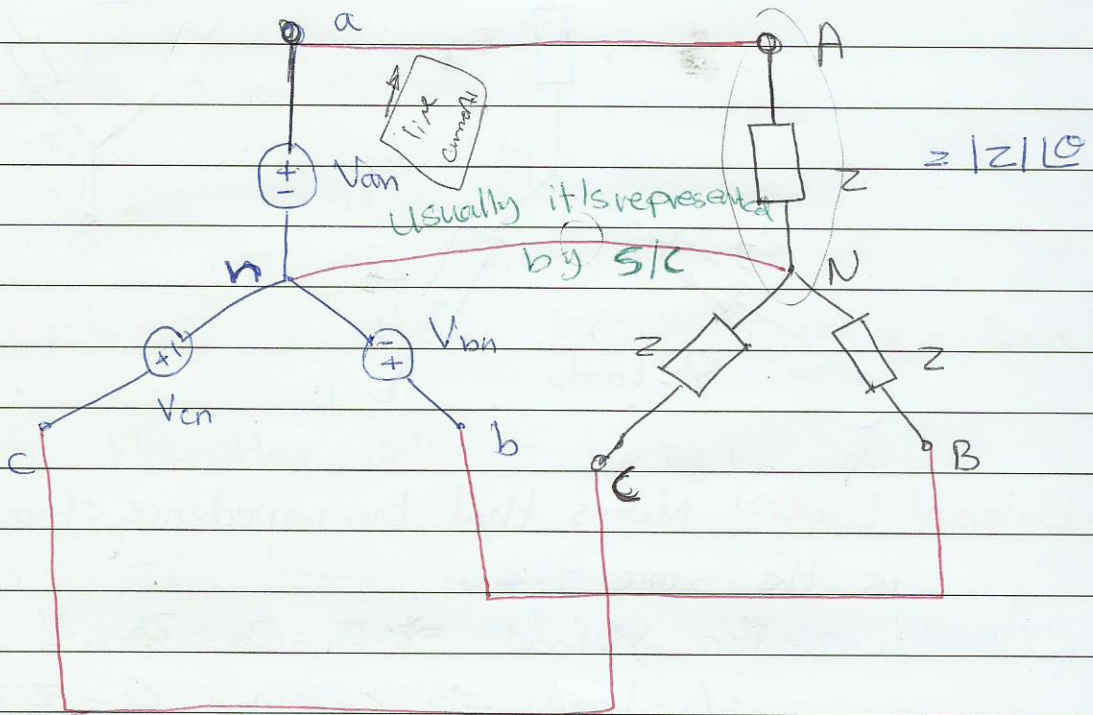 a
A
line
current
+
-
Van
Z
= |Z|∠θ
Usually it Is represented
by S/C
n
N
Vbn
-
+
+
Z
Z
Vcn
c
b
C
B